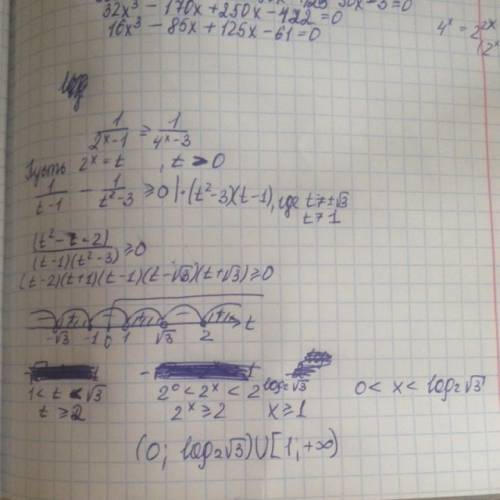 32x³ - 170x + 250x - 422 = 0
16x³ - 85x + 125x - 61 = 0
4ˣ = 2²ˣ
1/(2ˣ-1) ≥ 1/(4ˣ-3)
Пусть 2ˣ = t, t > 0
1/(t-1) - 1/(t²-3) ≥ 0 | · (t²-3)(t-1), где t ≠ ±√3
t ≠ 1
(t²-t-2)/((t-1)(t²-3)) ≥ 0
(t-2)(t+1)(t-1)(t-√3)(t+√3) ≥ 0
-√3 -1 0 1 √3 2 t
1 < t < √3 2⁰ < 2ˣ < 2^log₂√3 0 < x < log₂√3
t ≥ 2 2ˣ ≥ 2 x ≥ 1
(0; log₂√3)∪[1; +∞)